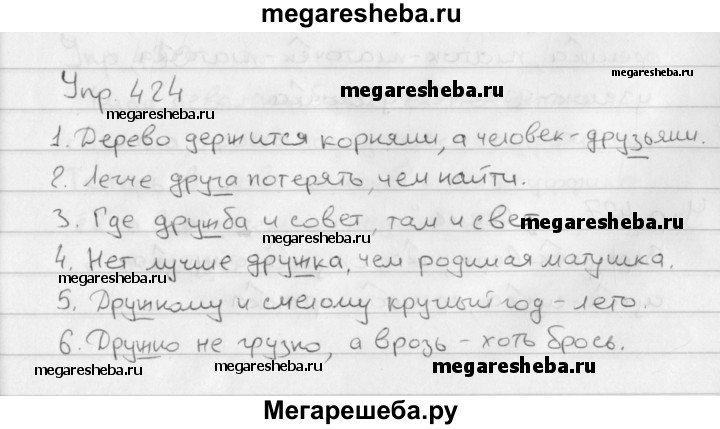 megaresheba.ru
Упр. 424
megaresheba.ru
megaresheba.ru
1. Дерево держится корнями, а человек - друзьями.
megaresheba.ru
2. Легче друга потерять, чем найти.
3. Где дружба и совет, там и свет.
megaresheba.ru
megaresheba.ru
4. Нет лучше дружка, чем родимая матушка.
megaresheba.ru
5. Дружному и смелому круглый год - лето.
6. Дружно не грузно, а врозь - хоть брось.
megaresheba.ru
megaresheba.ru
megaresheba.ru
Мегарешеба.ру